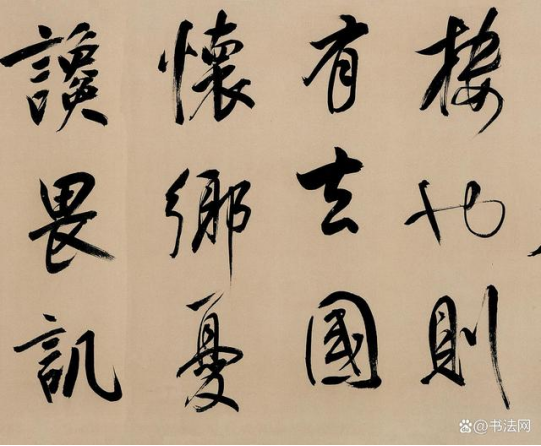 樓也則
有去國
懷鄉憂
讒畏譏
@书法网